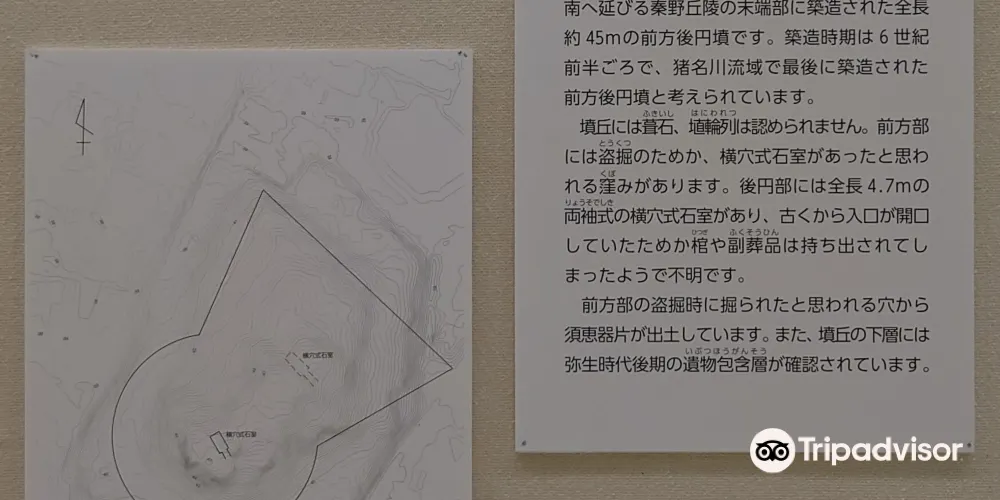 南へ延びる秦野丘陵の末端部に築造された全長
約45mの前方後円墳です。築造時期は6世紀
前半ごろで、猪名川流域で最後に築造された
前方後円墳と考えられています。
ふきいし はにわれつ
墳丘には葺石、埴輪列は認められません。前方部
とうくつ
には盗掘のためか、横穴式石室があったと思わ
くぼ
れる窪みがあります。後円部には全長4.7mの
りょうそでしき
両袖式の横穴式石室があり、古くから入口が開口
ひつぎ ふくそうひん
していたためか棺や副葬品は持ち出されてし
まったようで不明です。
前方部の盗掘時に掘られたと思われる穴から
須恵器片が出土しています。また、墳丘の下層には
いぶつほうがんそう
弥生時代後期の遺物包含層が確認されています。
横穴式石室
横穴式石室
Tripadvisor